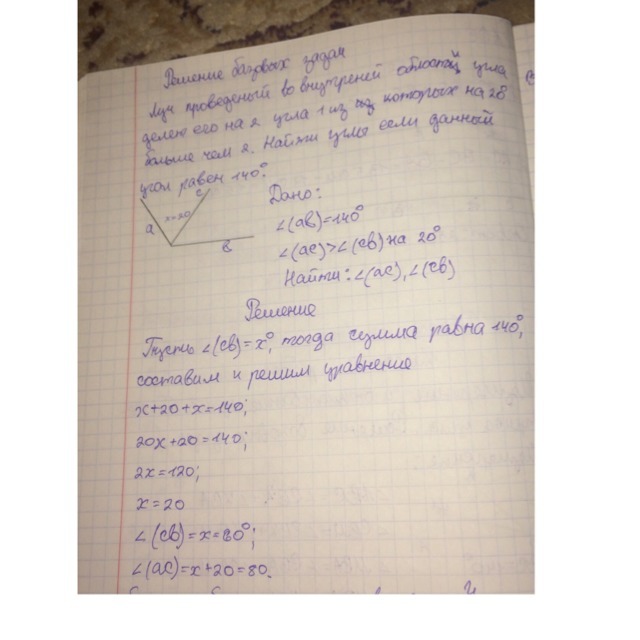 Решение базовых задач
Луч проведеный во внутреней области угла
делет его на 2 угла 1 из которых на 20
больше чем 2. Найти углы если данный
угол равен 140°.
c
a
x+20
в
Дано:
∠(ав)=140°
∠(ас)>∠(св) на 20°
Найти: ∠(ас), ∠(св)
Решение
Пусть ∠(св)=x°, тогда сумма равна 140°,
составим и решим уравнение
x+20+x=140;
20x+20=140;
2x=120;
x=20
∠(св)=x=80°;
∠(ас)=x+20=80.